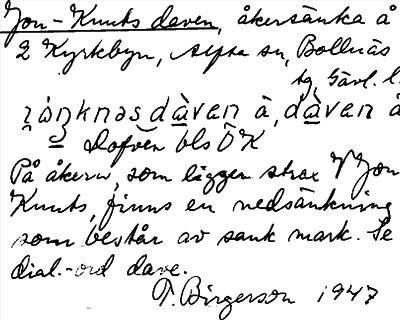 Jon-Knuts daven, åkersänka å
2 Kyrkbyn, Alfta sn, Bollnäs
tg, Gävl. l.
dàven à, dàven å
Dofven bls ÖK
På åkern, som ligger strax V Jon
Knuts, finns en nedsänkning
som består av sank mark. Se
dial.-ord dave.
T. Birgerson 1947